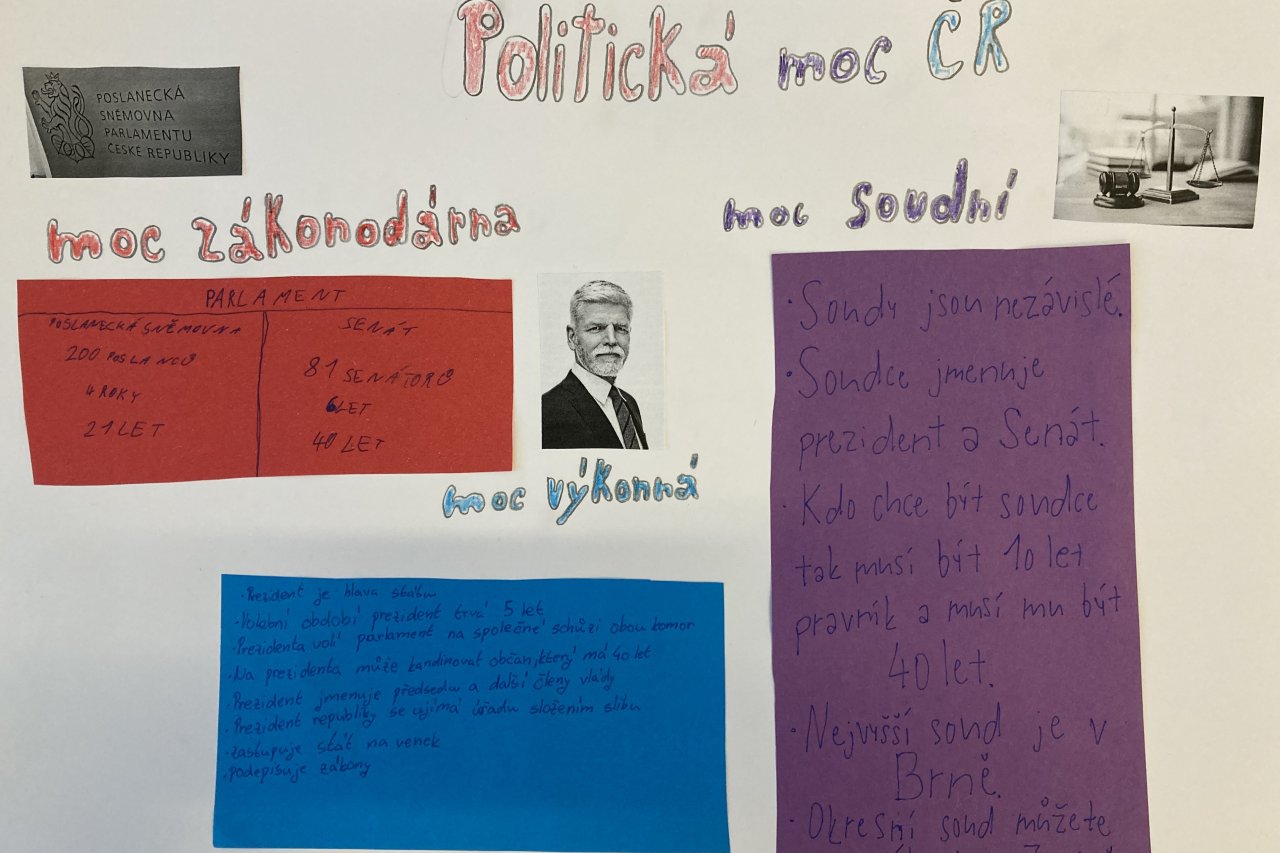 Politická moc ČR
POSLANECKÁ
SNĚMOVNA
PARLAMENTU
ČESKÉ REPUBLIKY
moc zákonodárna
PARLAMENT
POSLANECKÁ SNĚMOVNA
200 POSLANCŮ
4 ROKY
21 LET
SENÁT
81 SENÁTORŮ
6 LET
40 LET
moc výkonná
·Prezident je hlava státu
·Volební období prezident trvá 5 let
·Prezidenta volí parlament na společné schůzi obou komor
·Na prezidenta může kandinovat občan, který má 40 let
·Prezident jmenuje předsedu a další členy vlády
·Prezident republiky se ujímá úřadu složením slibu
·zastupuje stát na venek
·podepisuje zákony
moc soudní
·Soudy jsou nezávislé.
·Soudce jmenuje
prezident a Senát.
·Kdo chce být soudce
tak musí být 10 let
pravník a musí mu být
40 let.
·Nejvyšší soud je v
Brně.
·Okresní soud můžete